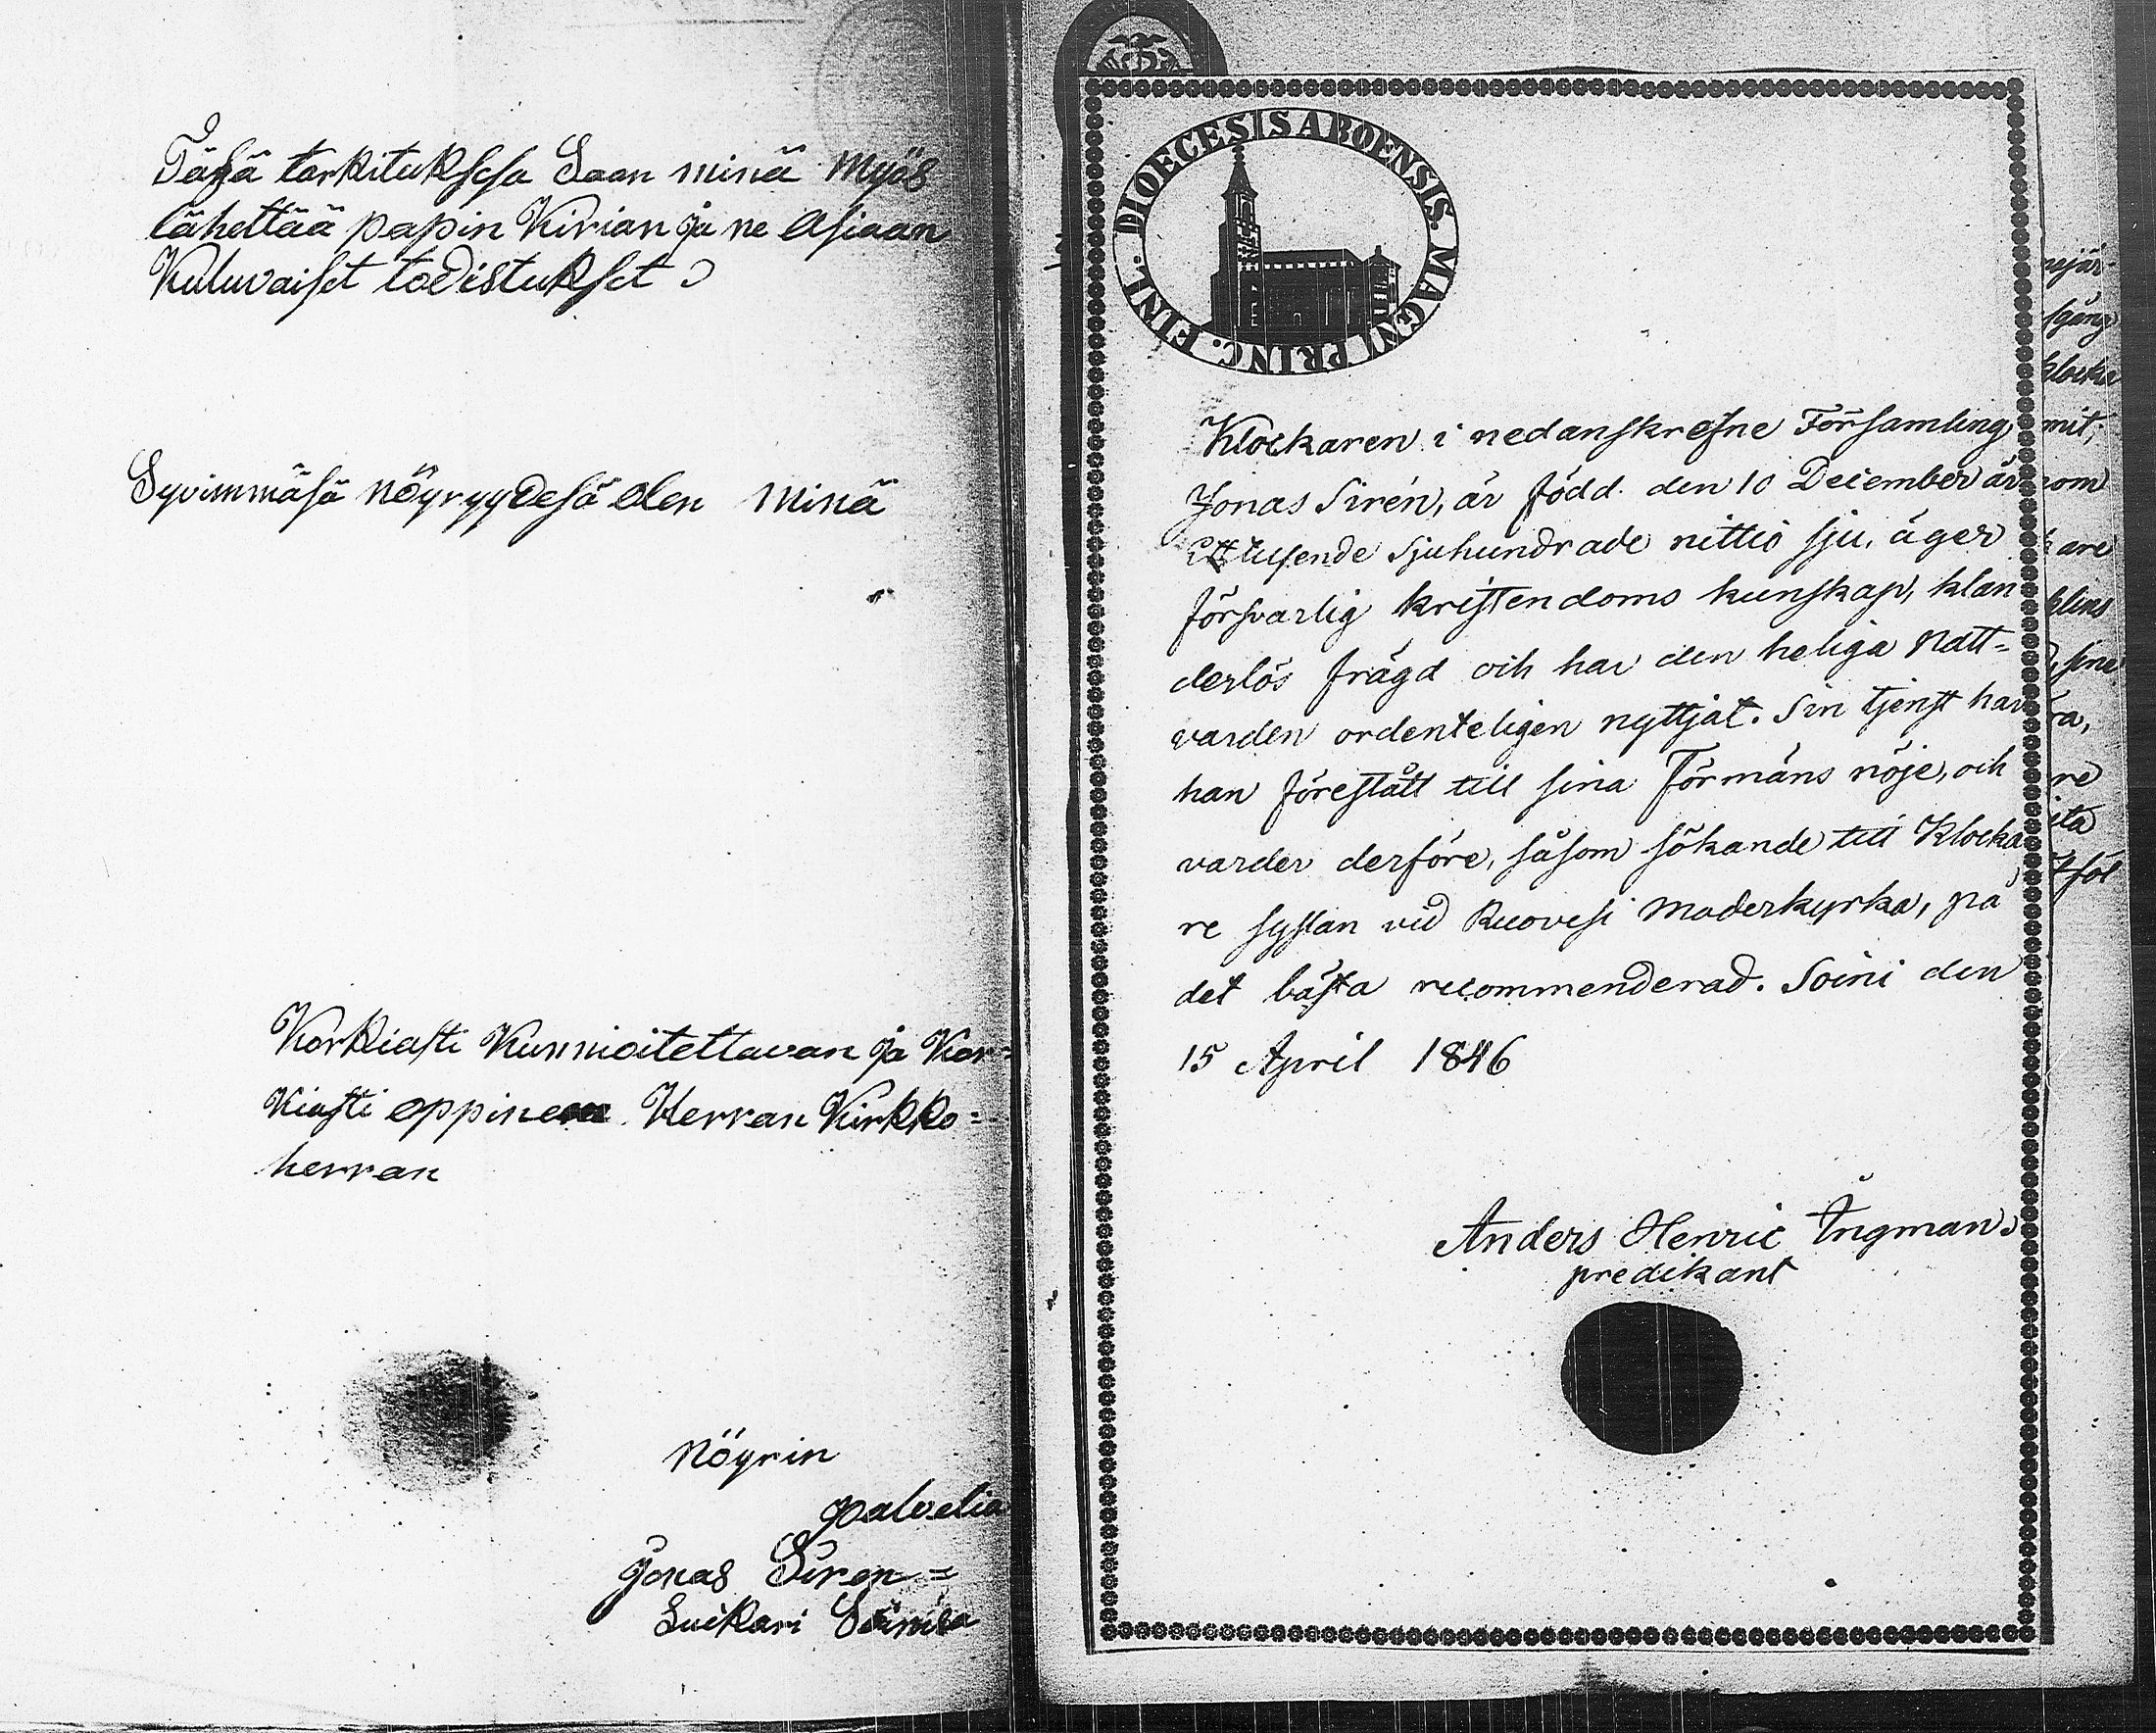 Täsä tarkituksesa Saan minä myös
lähettää papin Kirian ja ne asiaan
Kuluvaiset todistukset
Syvimmäsä nöyryydesä olen minä
Korkiasti Kunnioitettavan ja Kor=
Kiasti oppineen Herran Kirkko=
herran
nöyrin
palvelia
Jonas Siren =
Lukkari Soinista
DIOECESIS ABOENSIS. MAGNI PRINC. FINL.
Klockaren i nedanskrefne Församling,
Jonas Sirén, är född den 10 December år
Ett tusende Sjuhundrade nittio sju, äger
försvarlig kristendoms kunskap, klan
derlös frägd och har den heliga Natt=
varden ordenteligen nyttjat. Sin tjenst har
han förestått till sina Förmäns nöje, och
varder derföre, såsom sökande till Klocka
re sysslan vid Ruovesi Moderkyrka, på
det bästa recommenderad. Soini den
15 April 1846
Anders Henric Ingman
predikant
klocka
mit,
om
are
sine
ra,
re
ita